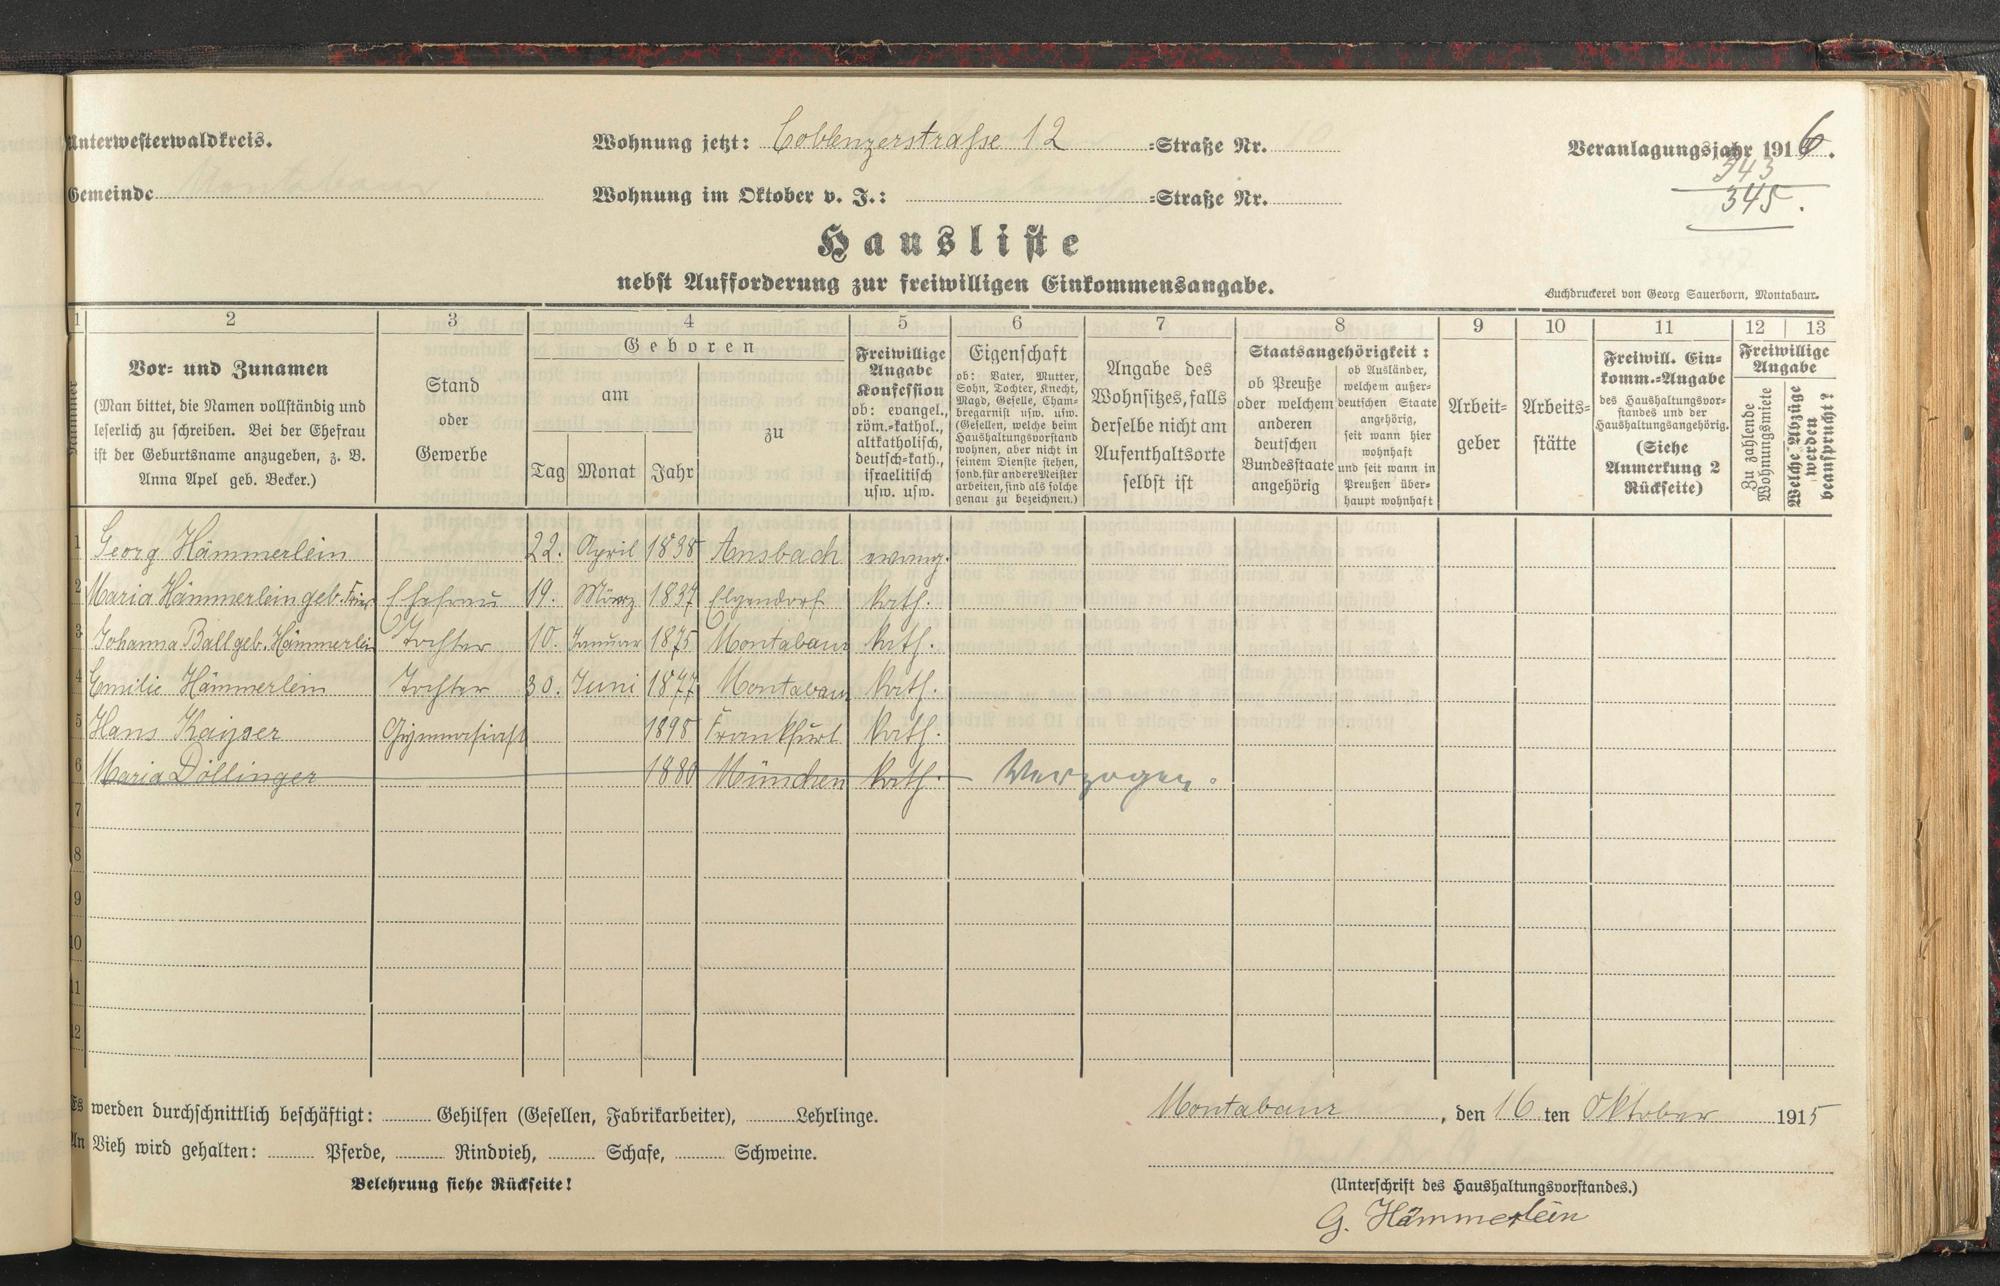 Unterwesterwaldkreis.
Wohnung jetzt: Coblenzerstraße 12 =Straße Nr.
Veranlagungsjahr 1916.
343
345.
Gemeinde
Wohnung im Oktober v. J.: =Straße Nr.
Hausliste
nebst Aufforderung zur freiwilligen Einkommensangabe.
Buchdruckerei von Georg Sauerborn, Montabaur.
1 2 3 4 5 6 7 8 9 10 11 12 13
Nummer
Vor- und Zunamen
(Man bittet, die Namen vollständig und
leserlich zu schreiben. Bei der Ehefrau
ist der Geburtsname anzugeben, z. B.
Anna Apel geb. Becker.)
Stand
oder
Gewerbe
Geboren
am
Tag Monat Jahr
zu
Freiwillige
Angabe
Konfession
ob: evangel.,
röm.=kathol.,
altkatholisch,
deutsch=kath.,
israelitisch
usw. usw.
Eigenschaft
ob: Vater, Mutter,
Sohn, Tochter, Knecht,
Magd, Geselle, Cham-
bregarnist usw. usw.
(Gesellen, welche beim
Haushaltungsvorstand
wohnen, aber nicht in
seinem Dienste stehen,
sond. für andere Meister
arbeiten, sind als solche
genau zu bezeichnen.)
Angabe des
Wohnsitzes, falls
derselbe nicht am
Aufenthaltsorte
selbst ist
Staatsangehörigkeit:
ob Preuße
oder welchem
anderen
deutschen
Bundesstaate
angehörig
ob Ausländer,
welchem außer-
deutschen Staate
angehörig,
seit wann hier
wohnhaft
und seit wann in
Preußen über-
haupt wohnhaft
Arbeit-
geber
Arbeits-
stätte
Freiwill. Ein-
komm.=Angabe
des Haushaltungsvor-
standes und der
Haushaltungsangehörig.
(Siehe
Anmerkung 2
Rückseite)
Freiwillige
Angabe
Zu zahlende
Wohnungsmiete
Welche Abzüge
werden
beansprucht?
1 Georg Hämmerlein 22. April 1838 Ansbach evang.
2 Maria Hämmerlein geb. Ehefrau 19. März 1837 Elgendorf kath.
3 Johanna Ball geb. Hämmerlein Tochter 10. Januar 1875 Montabaur kath.
4 Emilie Hämmerlein Tochter 30. Juni 1877 Montabaur kath.
5 Hans Kayser Gymnasiast 1898 Frankfurt kath.
6 Maria Döllinger 1880 München kath. Verzogen.
7
8
9
10
11
12
Es werden durchschnittlich beschäftigt: Gehilfen (Gesellen, Fabrikarbeiter), Lehrlinge.
An Vieh wird gehalten: Pferde, Rindvieh, Schafe, Schweine.
Belehrung siehe Rückseite!
Montabaur, den 16 ten Oktober 1915
(Unterschrift des Haushaltungsvorstandes.)
G. Hämmerlein